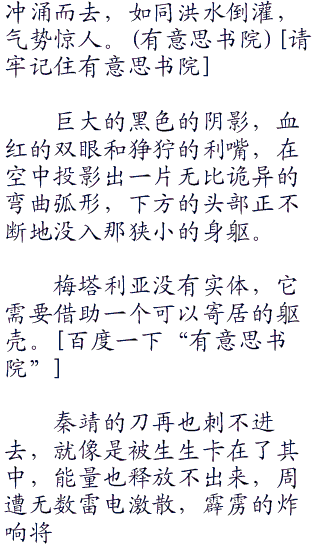 冲涌而去，如同洪水倒灌，
气势惊人。(有意思书院)[请
牢记住有意思书院]
巨大的黑色的阴影，血
红的双眼和狰狞的利嘴，在
空中投影出一片无比诡异的
弯曲弧形，下方的头部正不
断地没入那狭小的身躯。
梅塔利亚没有实体，它
需要借助一个可以寄居的躯
壳。[百度一下“有意思书
院”]
秦靖的刀再也刺不进
去，就像是被生生卡在了其
中，能量也释放不出来，周
遭无数雷电激散，霹雳的炸
响将